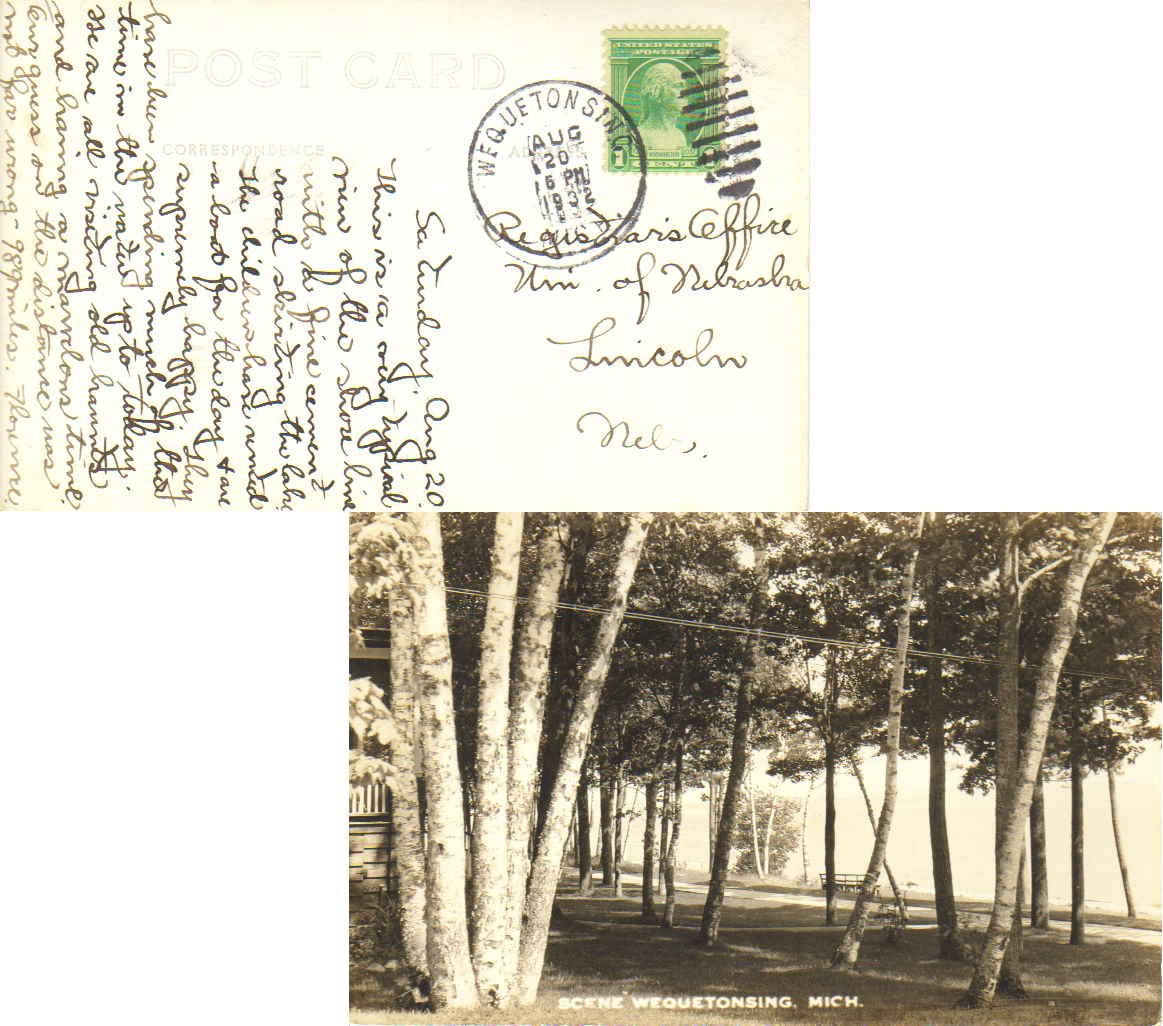 POST CARD
CORRESPONDENCE
UNITED STATES
POSTAGE
1
CENT
WEQUETONSING
AUG
20
6 PM
1932
MICH.
Registrar's Office
Uni. of Nebraska
Lincoln
Nebr.
Saturday, Aug 20
This is a very typical
view of the shore line
with a fine cement
road skirting the lake
The children have rented
a boat for the day & are
supremely happy. They
have been spending much of their
time in the water up to today.
We are all visiting old haunts
and having a marvelous time.
Our guess on the distance was
not far wrong - 989 miles.
SCENE WEQUETONSING, MICH.